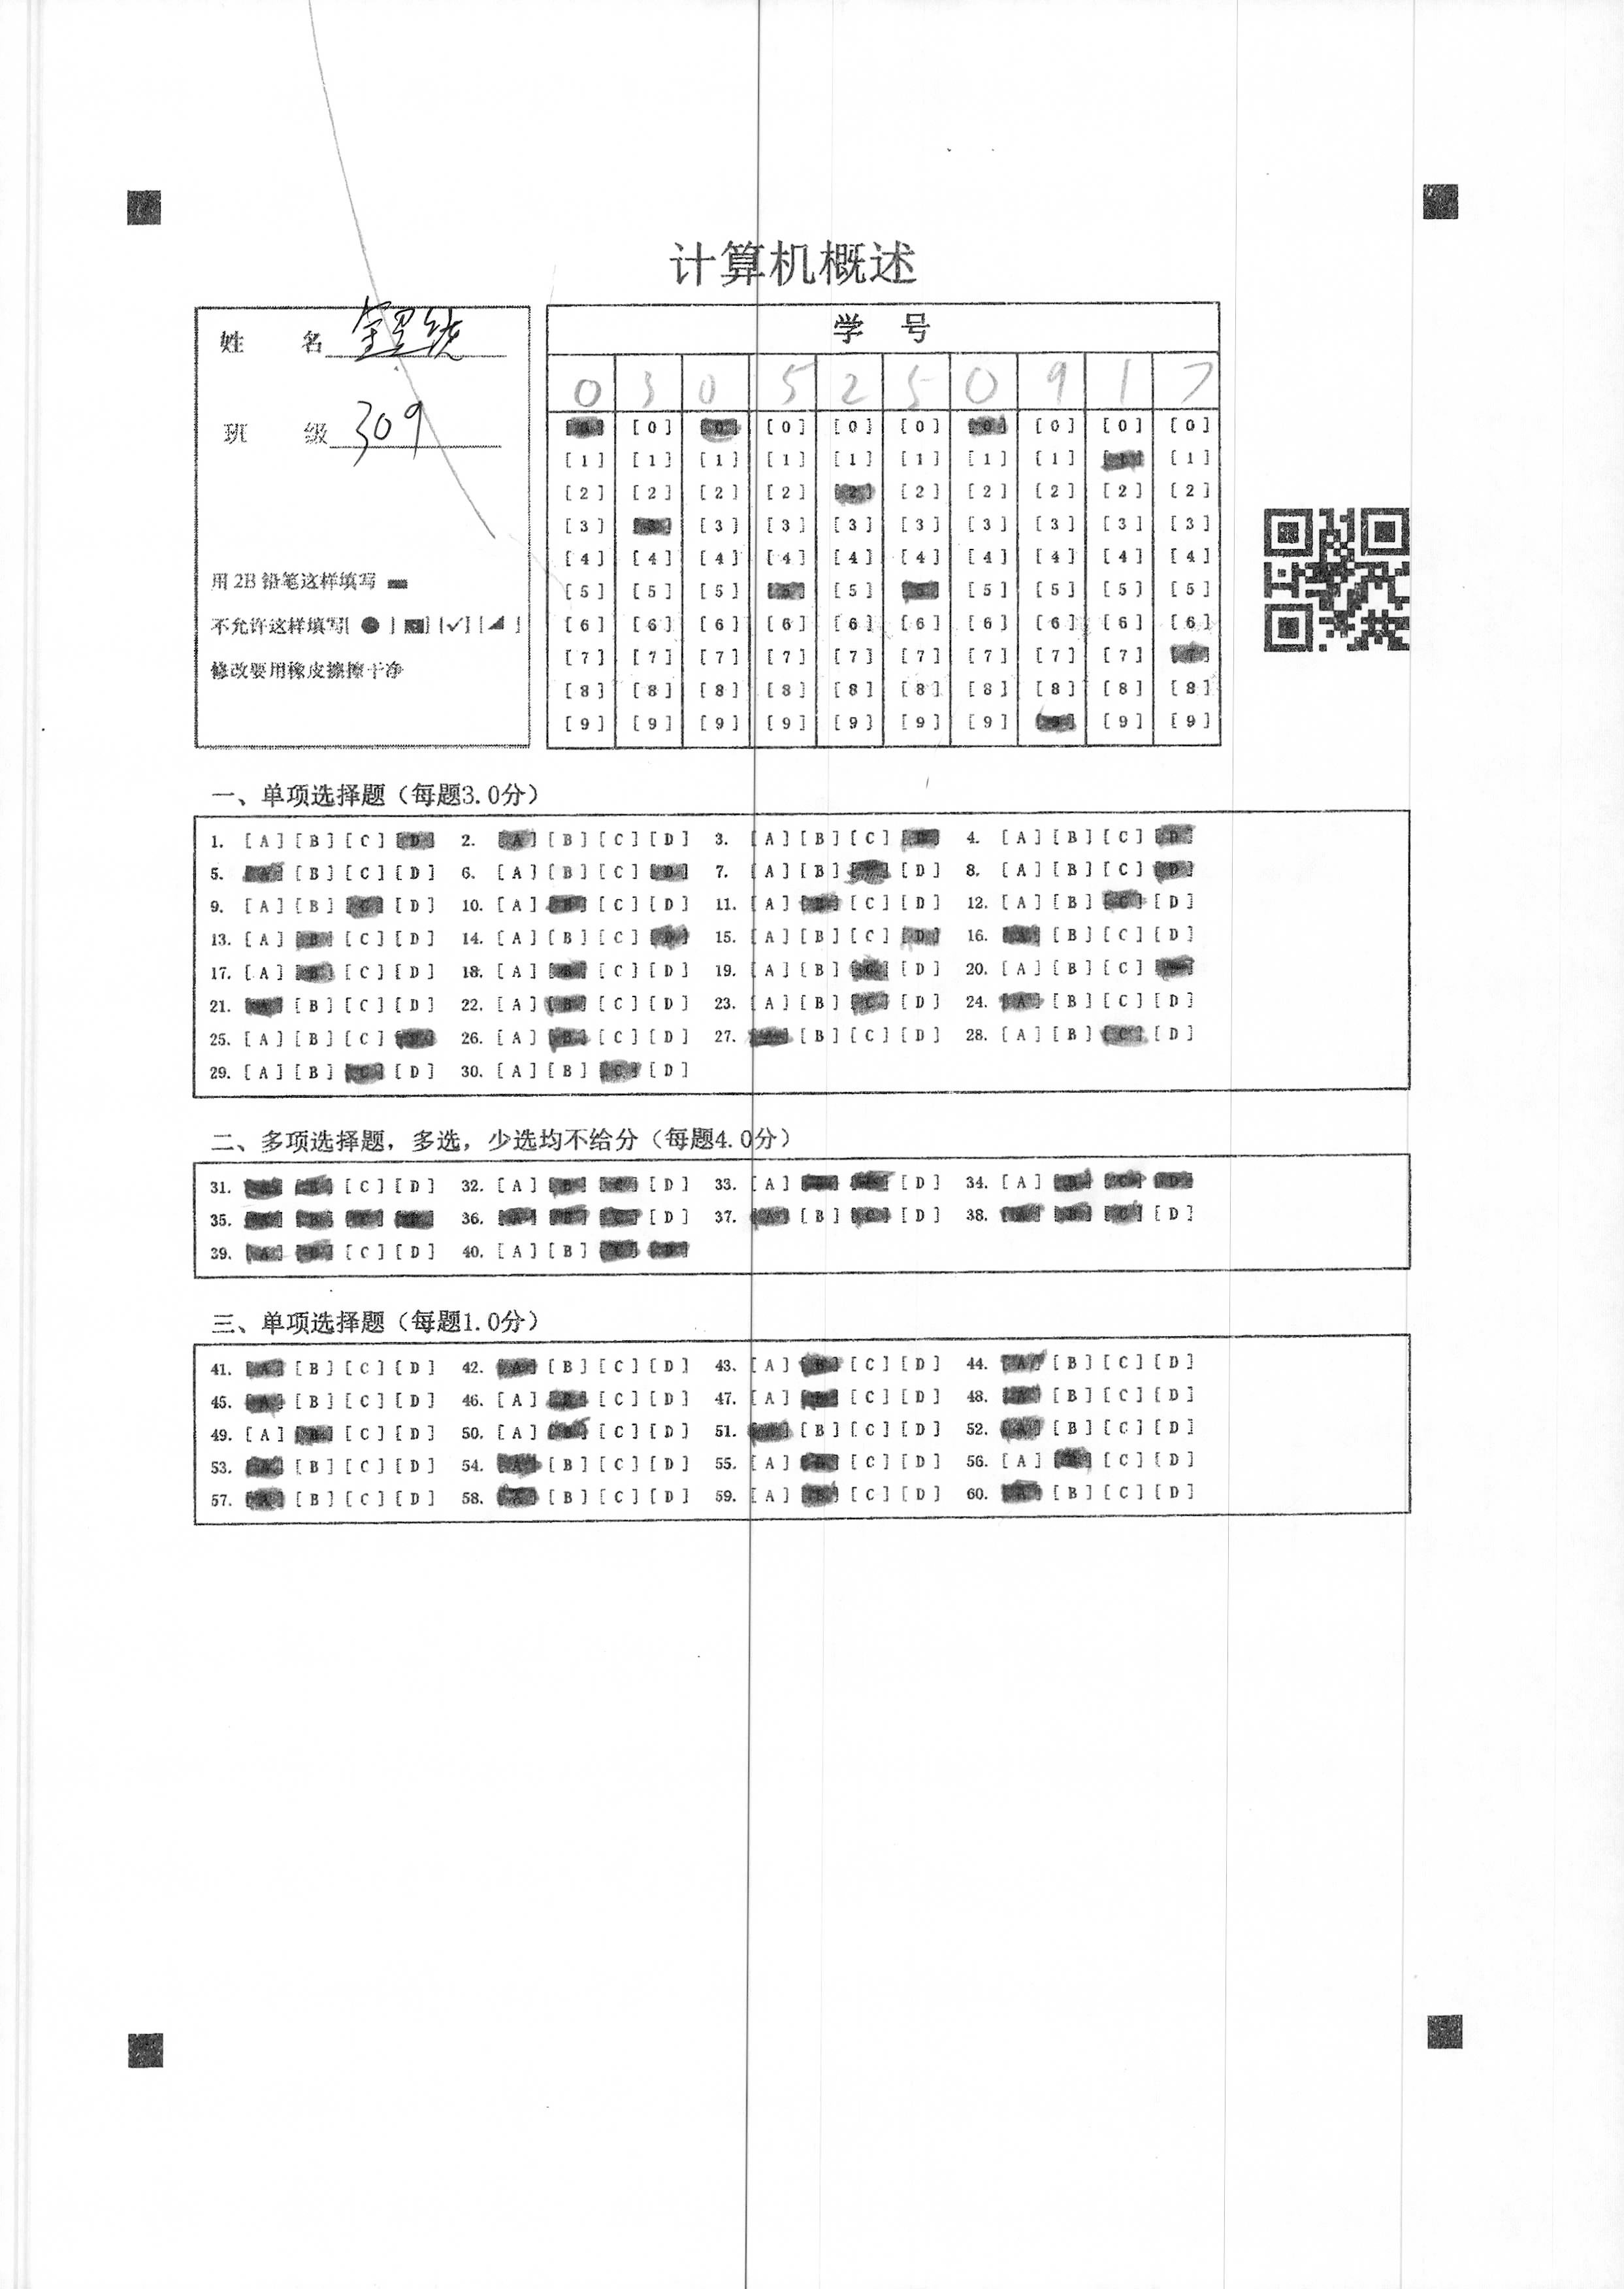 计算机概述
姓 名
班 级 309
用2B铅笔这样填写
不允许这样填写[ ● ] [ ] [√] [ ]
修改要用橡皮擦擦干净
学 号
0 3 0 5 2 5 0 9 1 7
[0] [0] [0] [0] [0] [0] [0] [0] [0] [0]
[1] [1] [1] [1] [1] [1] [1] [1] [1] [1]
[2] [2] [2] [2] [2] [2] [2] [2] [2] [2]
[3] [3] [3] [3] [3] [3] [3] [3] [3] [3]
[4] [4] [4] [4] [4] [4] [4] [4] [4] [4]
[5] [5] [5] [5] [5] [5] [5] [5] [5] [5]
[6] [6] [6] [6] [6] [6] [6] [6] [6] [6]
[7] [7] [7] [7] [7] [7] [7] [7] [7] [7]
[8] [8] [8] [8] [8] [8] [8] [8] [8] [8]
[9] [9] [9] [9] [9] [9] [9] [9] [9] [9]
一、单项选择题（每题3.0分）
1. [A] [B] [C] [D] 2. [A] [B] [C] [D] 3. [A] [B] [C] [D] 4. [A] [B] [C] [D]
5. [A] [B] [C] [D] 6. [A] [B] [C] [D] 7. [A] [B] [C] [D] 8. [A] [B] [C] [D]
9. [A] [B] [C] [D] 10. [A] [B] [C] [D] 11. [A] [B] [C] [D] 12. [A] [B] [C] [D]
13. [A] [B] [C] [D] 14. [A] [B] [C] [D] 15. [A] [B] [C] [D] 16. [A] [B] [C] [D]
17. [A] [B] [C] [D] 18. [A] [B] [C] [D] 19. [A] [B] [C] [D] 20. [A] [B] [C] [D]
21. [A] [B] [C] [D] 22. [A] [B] [C] [D] 23. [A] [B] [C] [D] 24. [A] [B] [C] [D]
25. [A] [B] [C] [D] 26. [A] [B] [C] [D] 27. [A] [B] [C] [D] 28. [A] [B] [C] [D]
29. [A] [B] [C] [D] 30. [A] [B] [C] [D]
二、多项选择题，多选，少选均不给分（每题4.0分）
31. [A] [B] [C] [D] 32. [A] [B] [C] [D] 33. [A] [B] [C] [D] 34. [A] [B] [C] [D]
35. [A] [B] [C] [D] 36. [A] [B] [C] [D] 37. [A] [B] [C] [D] 38. [A] [B] [C] [D]
39. [A] [B] [C] [D] 40. [A] [B] [C] [D]
三、单项选择题（每题1.0分）
41. [A] [B] [C] [D] 42. [A] [B] [C] [D] 43. [A] [B] [C] [D] 44. [A] [B] [C] [D]
45. [A] [B] [C] [D] 46. [A] [B] [C] [D] 47. [A] [B] [C] [D] 48. [A] [B] [C] [D]
49. [A] [B] [C] [D] 50. [A] [B] [C] [D] 51. [A] [B] [C] [D] 52. [A] [B] [C] [D]
53. [A] [B] [C] [D] 54. [A] [B] [C] [D] 55. [A] [B] [C] [D] 56. [A] [B] [C] [D]
57. [A] [B] [C] [D] 58. [A] [B] [C] [D] 59. [A] [B] [C] [D] 60. [A] [B] [C] [D]